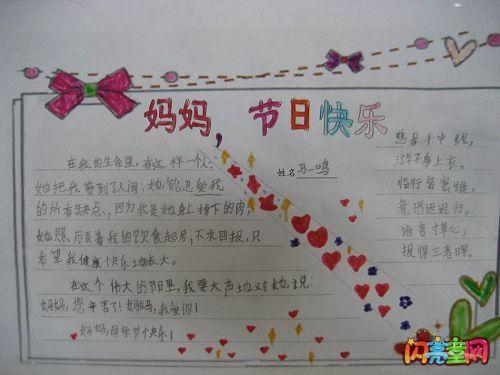 妈妈，节日快乐
姓名 马一鸣
在我的生命里，有这样一个人：
她把我带到了人间；她能忍受我
的所有缺点，因为我是她身上掉下的肉，
她照顾着我的饮食起居，不求回报，只
希望我健康快乐地长大。
在这个伟大的节日里，我要大声地对她说：
妈妈，您辛苦了！妈妈，我爱你！
妈妈，母亲节快乐！
慈母手中线，
游子身上衣。
临行密密缝，
意恐迟迟归。
谁言寸草心，
报得三春晖。
闪亮童网